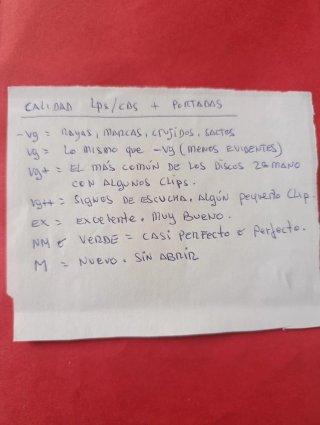 CALIDAD LPs/CDs + PORTADAS
-Vg = Rayas, MARCAS, CRUJIDOS, SALTOS
Vg = Lo mismo que -Vg (MENOS EVIDENTES)
Vg+ = EL MÁS COMÚN DE LOS DISCOS 2ª MANO
CON ALGUNOS CLIPS.
Vg++ = SIGNOS DE ESCUCHA. Algún pequeño Clip.
EX = Excelente. Muy Bueno.
NM o VERDE = CASI PERFECTO o Perfecto.
M = NUEVO. SIN ABRIR